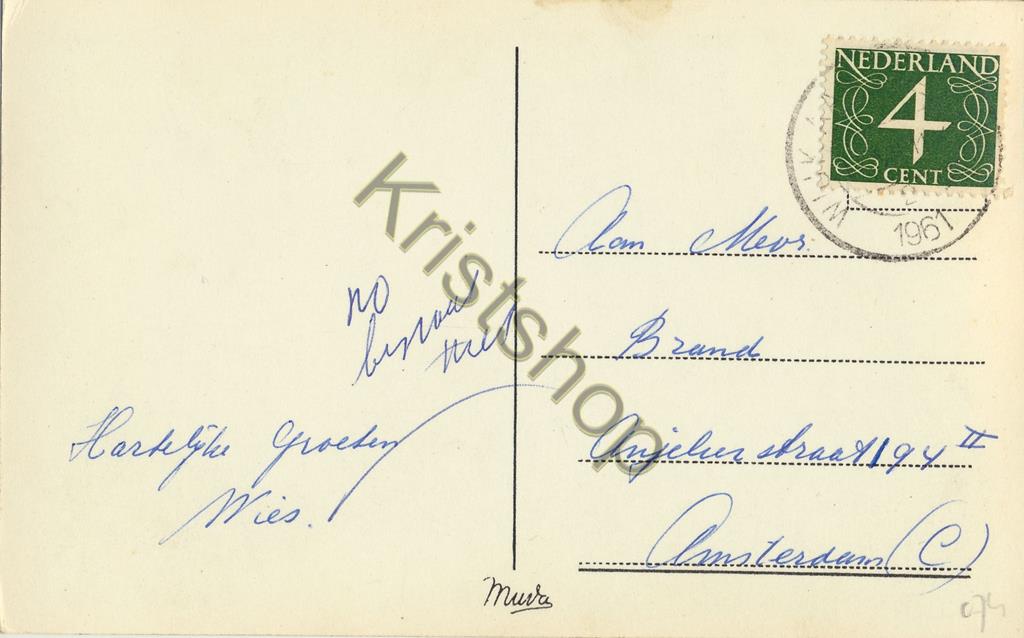 NEDERLAND
4
CENT
WIJK A
1961
Kristshop
Aan Mevr.
Brand
Anjelierstraat 194 II
Amsterdam (C)
no
bestaat
niet
Hartelijke Groeten
Wies.
Muva